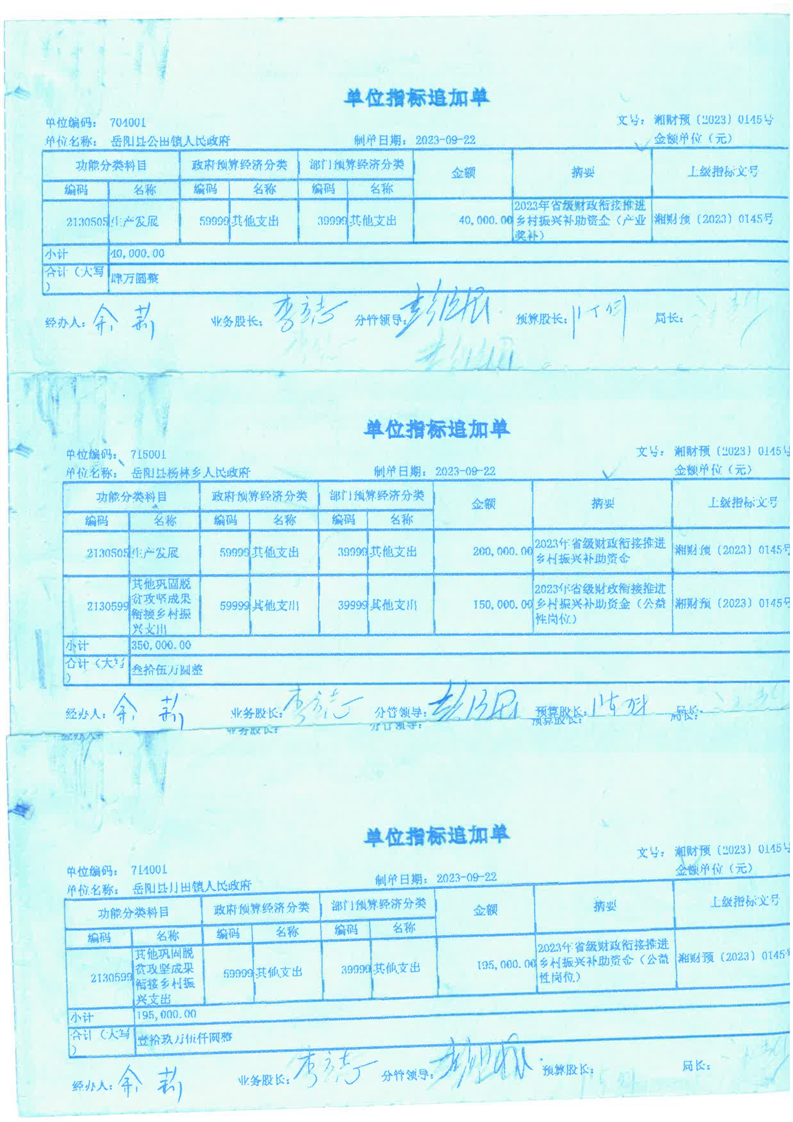 单位指标追加单
单位编码： 704001 文号： 湘财预〔2023〕0145号
单位名称： 岳阳县公田镇人民政府 制单日期： 2023-09-22 金额单位（元）
功能分类科目 政府预算经济分类 部门预算经济分类 金额 摘要 上级指标文号
编码 名称 编码 名称 编码 名称
2130505 生产发展 59999 其他支出 39999 其他支出 40,000.00 2023年省级财政衔接推进乡村振兴补助资金（产业奖补） 湘财预〔2023〕0145号
小计 40,000.00
合计（大写） 肆万圆整
经办人： 余莉 业务股长： 李志 分管领导： 预算股长： 局长：
单位指标追加单
单位编码： 715001 文号： 湘财预〔2023〕0145号
单位名称： 岳阳县杨林乡人民政府 制单日期： 2023-09-22 金额单位（元）
功能分类科目 政府预算经济分类 部门预算经济分类 金额 摘要 上级指标文号
编码 名称 编码 名称 编码 名称
2130505 生产发展 59999 其他支出 39999 其他支出 200,000.00 2023年省级财政衔接推进乡村振兴补助资金 湘财预〔2023〕0145号
2130599 其他巩固脱贫攻坚成果衔接乡村振兴支出 59999 其他支出 39999 其他支出 150,000.00 2023年省级财政衔接推进乡村振兴补助资金（公益性岗位） 湘财预〔2023〕0145号
小计 350,000.00
合计（大写） 叁拾伍万圆整
经办人： 余莉 业务股长： 分管领导： 预算股长： 局长：
经办人： 业务股长： 分管领导： 预算股长：
单位指标追加单
单位编码： 714001 文号： 湘财预〔2023〕0145号
单位名称： 岳阳县月田镇人民政府 制单日期： 2023-09-22 金额单位（元）
功能分类科目 政府预算经济分类 部门预算经济分类 金额 摘要 上级指标文号
编码 名称 编码 名称 编码 名称
2130599 其他巩固脱贫攻坚成果衔接乡村振兴支出 59999 其他支出 39999 其他支出 195,000.00 2023年省级财政衔接推进乡村振兴补助资金（公益性岗位） 湘财预〔2023〕0145号
小计 195,000.00
合计（大写） 壹拾玖万伍仟圆整
经办人： 余莉 业务股长： 分管领导： 预算股长： 局长：